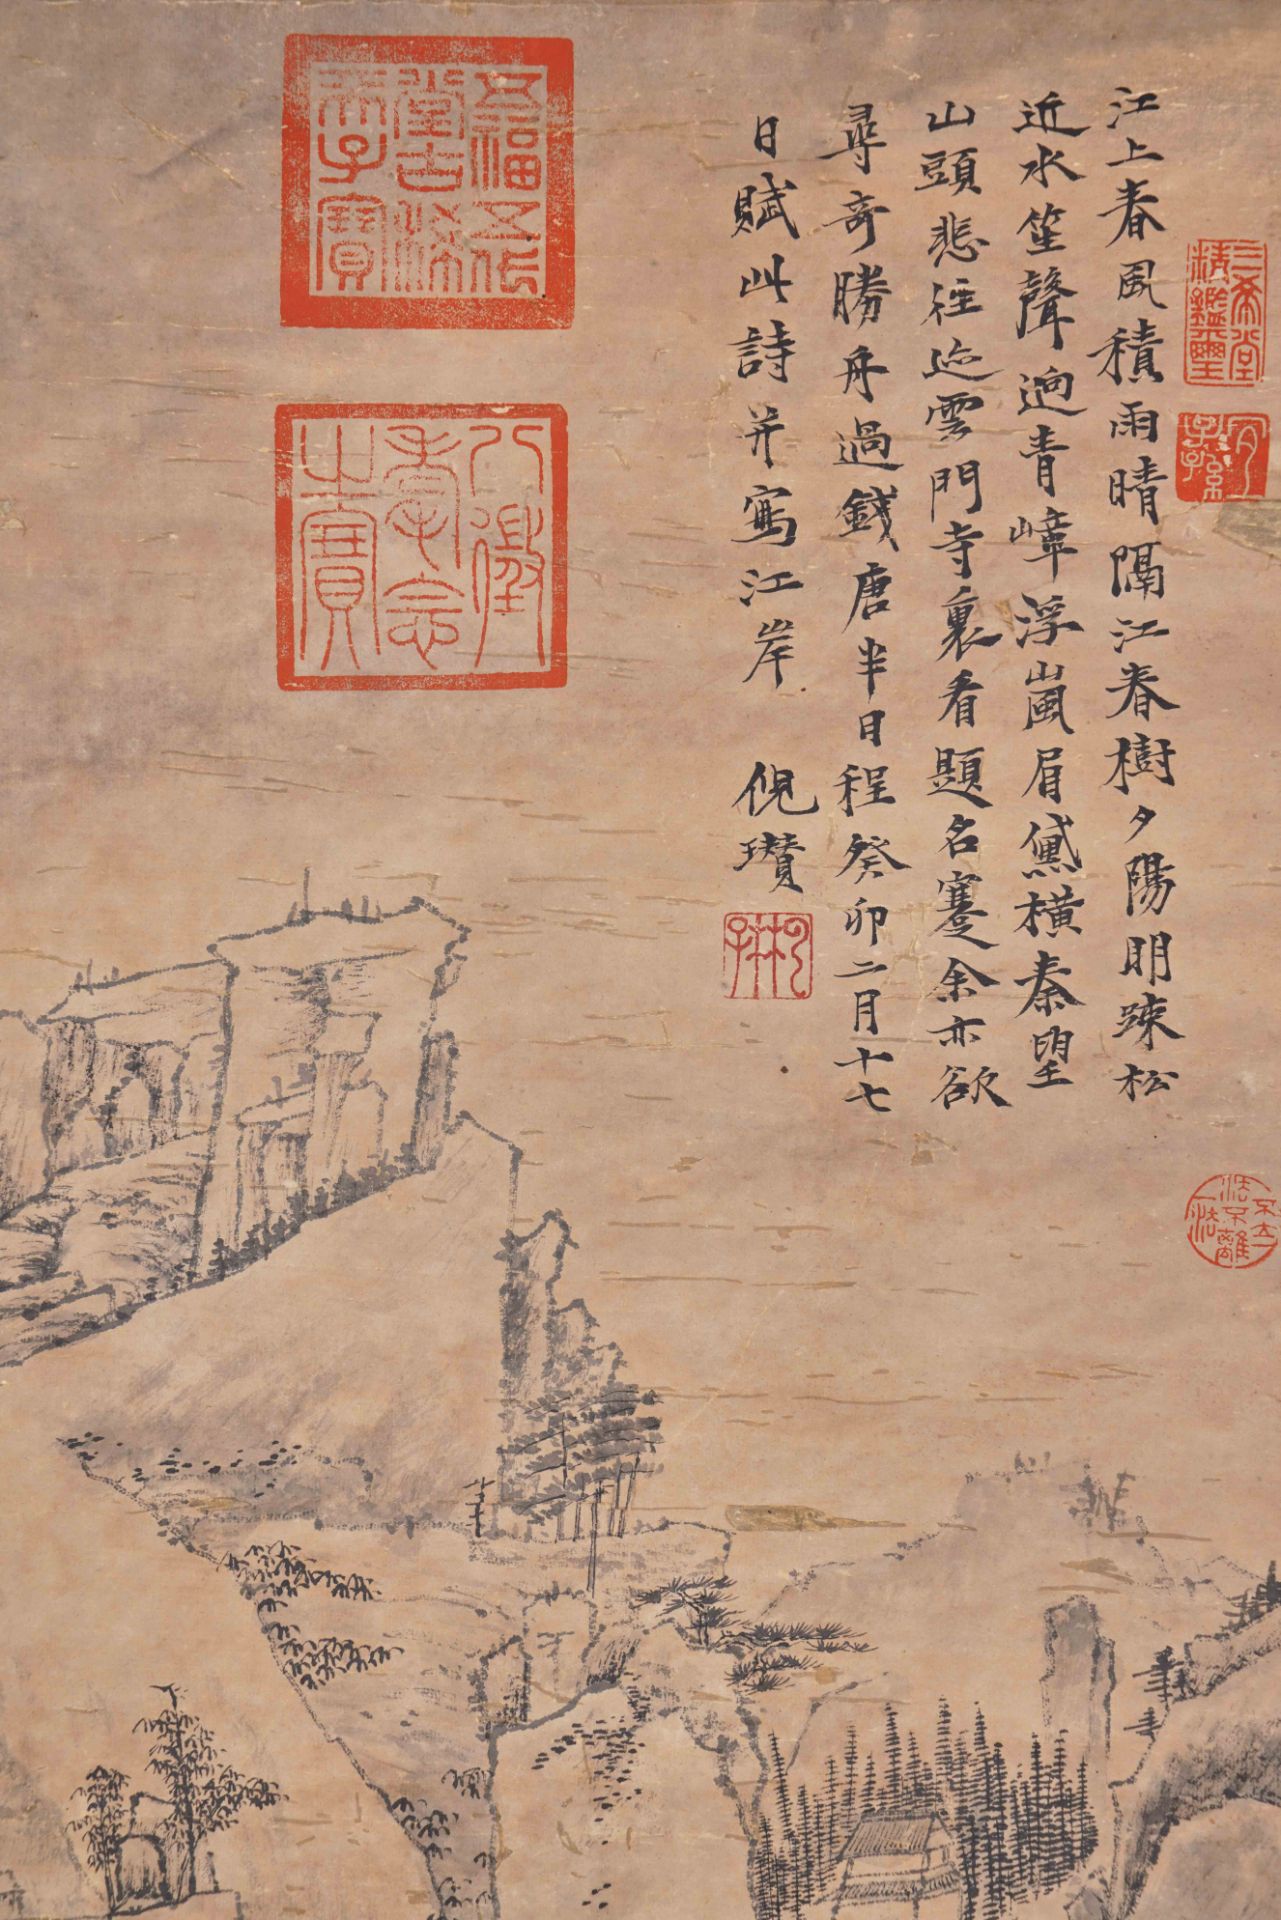 江上春風積雨晴隔江春樹夕陽明疎松
近水笙聲迥青嶂浮嵐眉黛橫秦望
山頭悲徃迹雲門寺裏看題名蹇余亦欲
尋奇勝舟過錢唐半日程癸卯二月十七
日賦此詩并寫江岸 倪瓚
三希堂
精鑑璽
宜
子孫
五福五代
堂古稀
天子寶
八徵
耄念
之寶